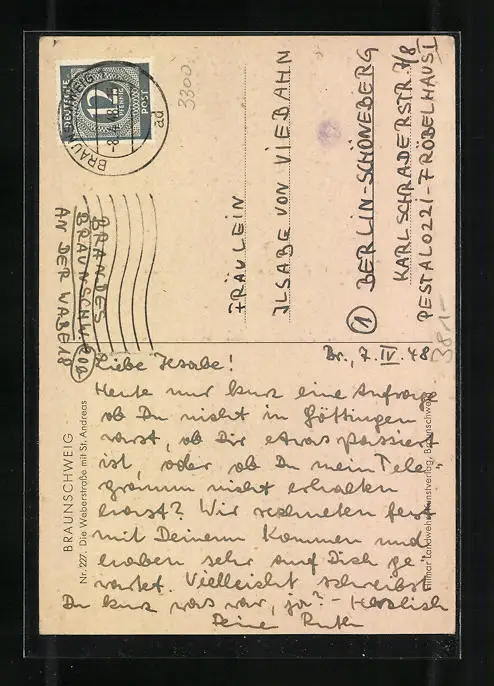 DEUTSCHE
POST
12
PFENNIG
BRAUNSCHWEIG
ad
3300.
FRÄULEIN
ILSABE VON VIEBAHN
① BERLIN-SCHÖNEBERG
KARL SCHRADERSTR. 7/8
PESTALOZZI-FRÖBELHAUS I
38,-
BRANDES
BRAUNSCHWEIG
AN DER WABE 18
BRAUNSCHWEIG
Nr. 227. Die Weberstraße mit St. Andreas
Br., 7. IV. 48
Liebe Ilsabe!
Heute nur kurz eine Anfrage
ob Du nicht in Göttingen
warst, ob Dir etwas passiert
ist, oder ob Du mein Tele-
gramm nicht erhalten
hast? Wir rechneten fest
mit Deinem Kommen und
haben sehr auf Dich ge-
wartet. Vielleicht schreibst
Du kurz was war, ja? - Herzlich
Deine Ruth
Kunstverlag, Braunschweig